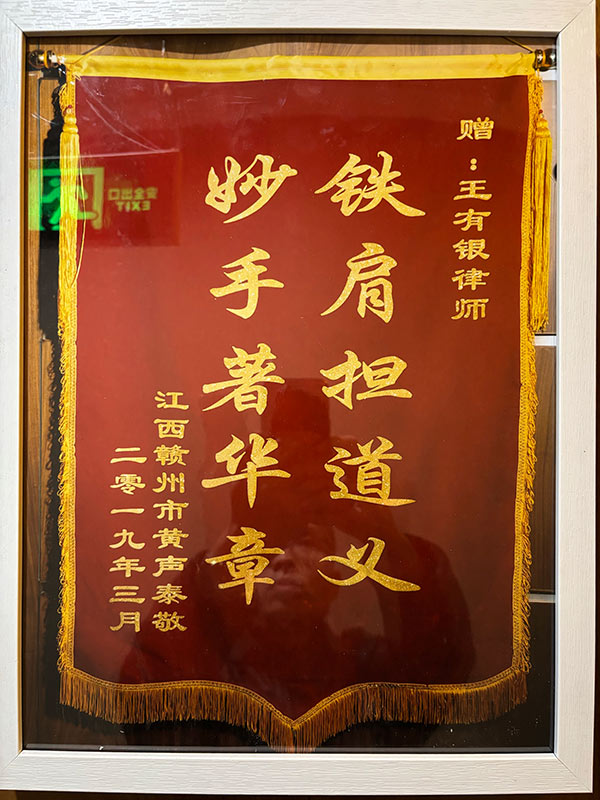 赠：王有银律师
铁肩担道义
妙手著华章
江西赣州市黄声泰敬
二零一九年三月
安全出口
EXIT